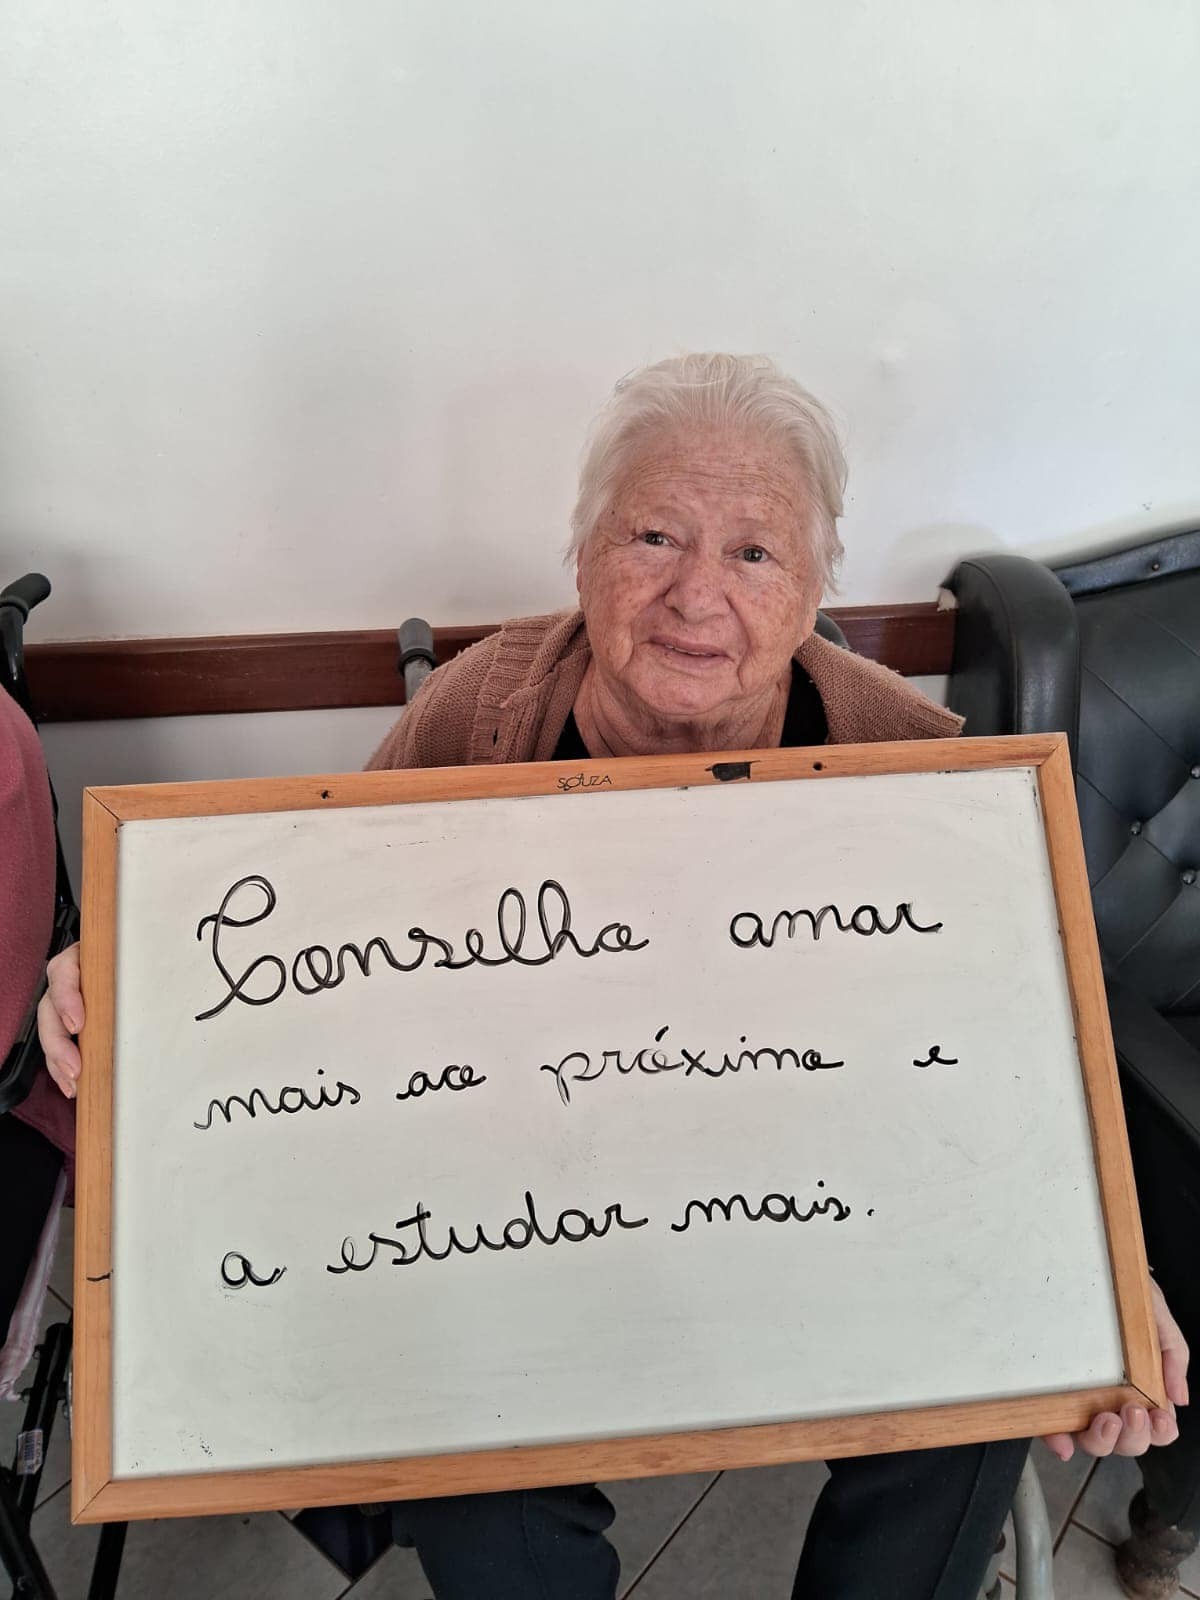 SOUZA
Conselho amar
mais ao próximo e
a estudar mais.